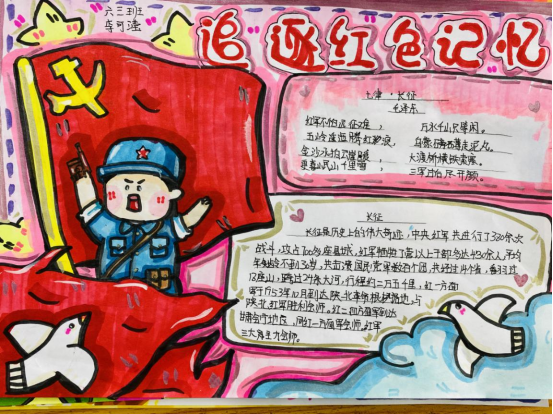 六三班
追逐红色记忆
七律·长征
毛泽东
红军不怕远征难, 万水千山只等闲。
五岭逶迤腾细浪, 乌蒙磅礴走泥丸。
金沙水拍云崖暖, 大渡桥横铁索寒。
更喜岷山千里雪, 三军过后尽开颜。
长征
长征是历史上的伟大奇迹,中央红军共进行了380余次
战斗,攻占700多座县城,红军牺牲了营以上干部多达430余人,平均
年龄不到30岁,共击溃国民党军数百个团,共经过14个省,翻越
18座山,跨过24条大河,行程约二万五千里,红一方面
军于1953年10月到达陕北革命根据地,与
陕北红军胜利会师。红二四方面军到达
甘肃会宁地区,同红一方面军会师。红军
三大主力会师。